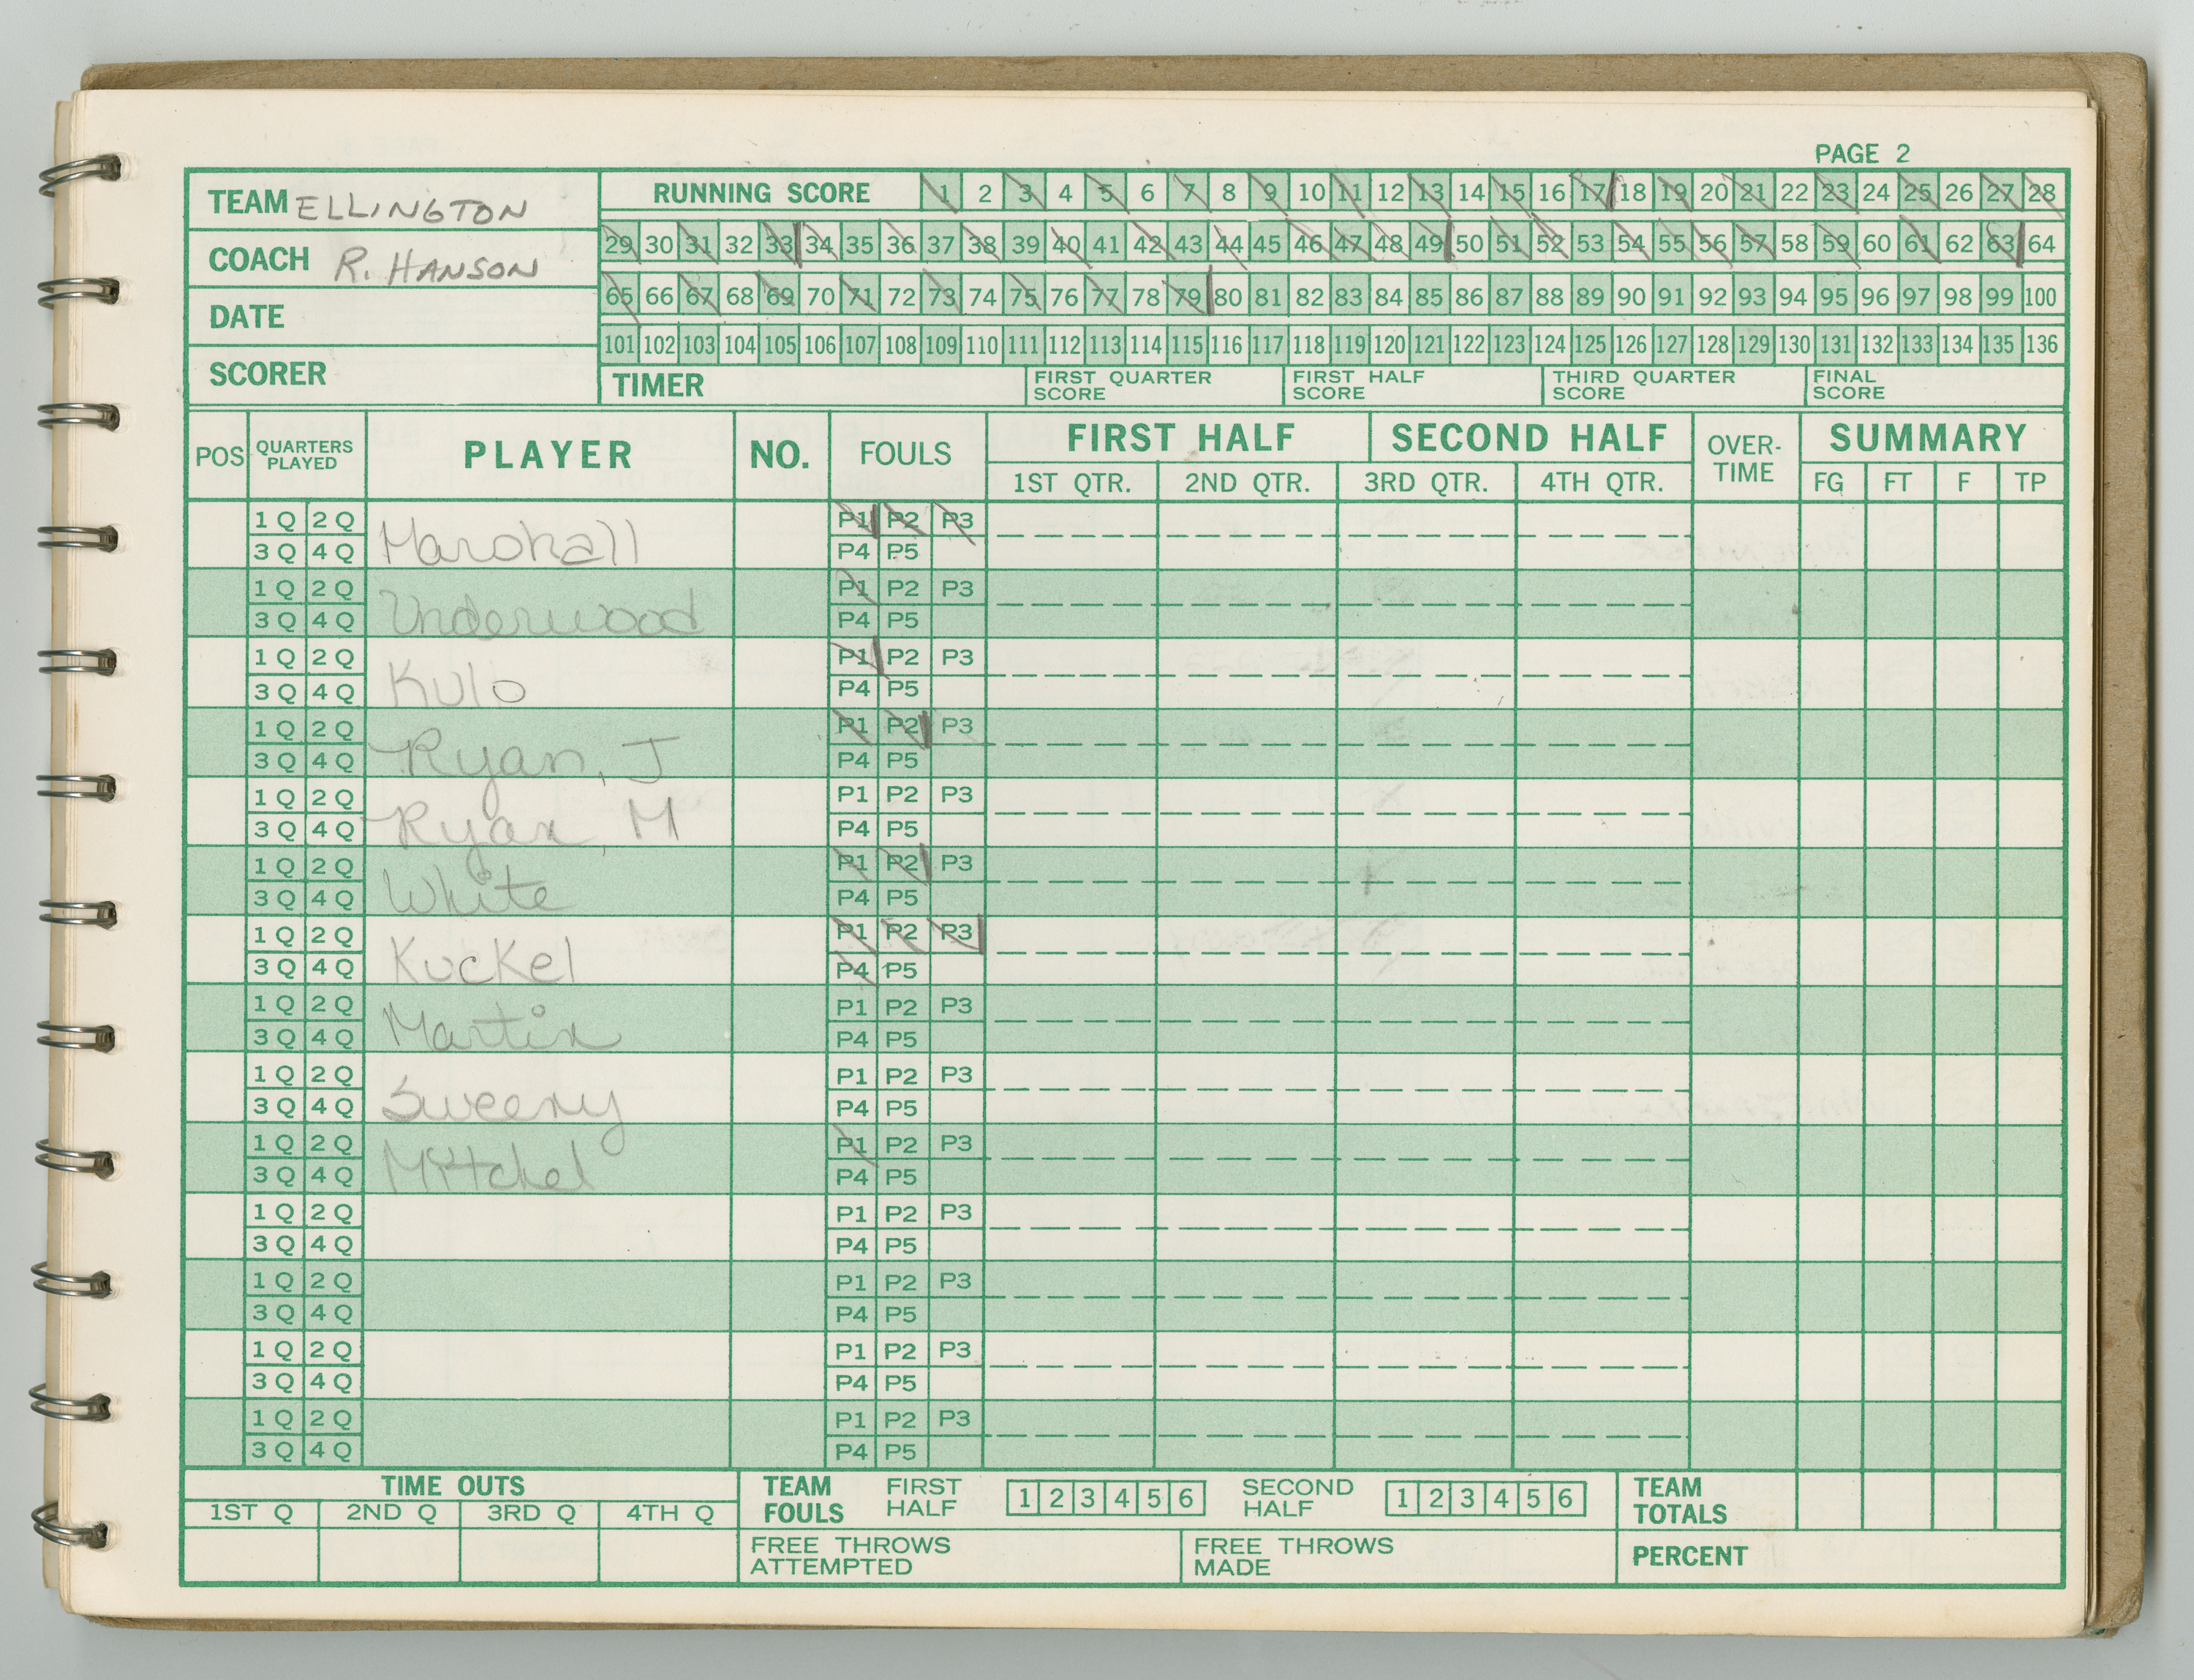 PAGE 2
TEAM ELLINGTON
COACH R. HANSON
DATE
SCORER
RUNNING SCORE 1 2 3 4 5 6 7 8 9 10 11 12 13 14 15 16 17 18 19 20 21 22 23 24 25 26 27 28
29 30 31 32 33 34 35 36 37 38 39 40 41 42 43 44 45 46 47 48 49 50 51 52 53 54 55 56 57 58 59 60 61 62 63 64
65 66 67 68 69 70 71 72 73 74 75 76 77 78 79 80 81 82 83 84 85 86 87 88 89 90 91 92 93 94 95 96 97 98 99 100
101 102 103 104 105 106 107 108 109 110 111 112 113 114 115 116 117 118 119 120 121 122 123 124 125 126 127 128 129 130 131 132 133 134 135 136
TIMER
FIRST QUARTER
SCORE
FIRST HALF
SCORE
THIRD QUARTER
SCORE
FINAL
SCORE
POS
QUARTERS
PLAYED
PLAYER
NO.
FOULS
FIRST HALF
SECOND HALF
1ST QTR. 2ND QTR. 3RD QTR. 4TH QTR.
OVER-
TIME
SUMMARY
FG FT F TP
1 Q 2 Q P1 P2 P3
3 Q 4 Q Marshall P4 P5
1 Q 2 Q P1 P2 P3
3 Q 4 Q Underwood P4 P5
1 Q 2 Q P1 P2 P3
3 Q 4 Q Kulo P4 P5
1 Q 2 Q P1 P2 P3
3 Q 4 Q Ryan, J P4 P5
1 Q 2 Q P1 P2 P3
3 Q 4 Q Ryan, M P4 P5
1 Q 2 Q P1 P2 P3
3 Q 4 Q White P4 P5
1 Q 2 Q P1 P2 P3
3 Q 4 Q Kuckel P4 P5
1 Q 2 Q P1 P2 P3
3 Q 4 Q Martin P4 P5
1 Q 2 Q P1 P2 P3
3 Q 4 Q Sweeny P4 P5
1 Q 2 Q P1 P2 P3
3 Q 4 Q Mitchel P4 P5
1 Q 2 Q P1 P2 P3
3 Q 4 Q P4 P5
1 Q 2 Q P1 P2 P3
3 Q 4 Q P4 P5
1 Q 2 Q P1 P2 P3
3 Q 4 Q P4 P5
1 Q 2 Q P1 P2 P3
3 Q 4 Q P4 P5
TIME OUTS
1ST Q 2ND Q 3RD Q 4TH Q
TEAM
FOULS
FIRST
HALF
1 2 3 4 5 6
SECOND
HALF
1 2 3 4 5 6
TEAM
TOTALS
FREE THROWS
ATTEMPTED
FREE THROWS
MADE
PERCENT